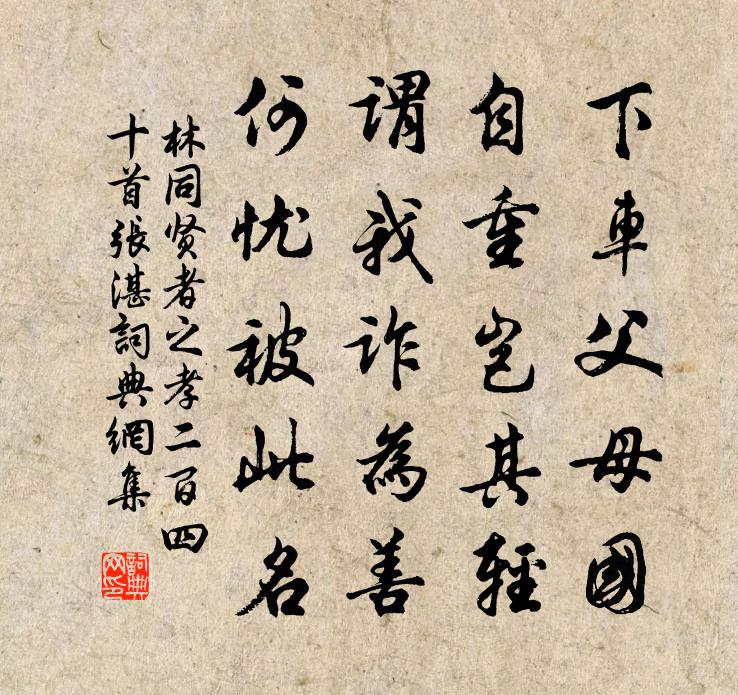 下車父母國
自重豈其輕
謂我詐為善
何忧被此名
林同贤者之孝二百四
十首張湛詞典網集
詞典
网印